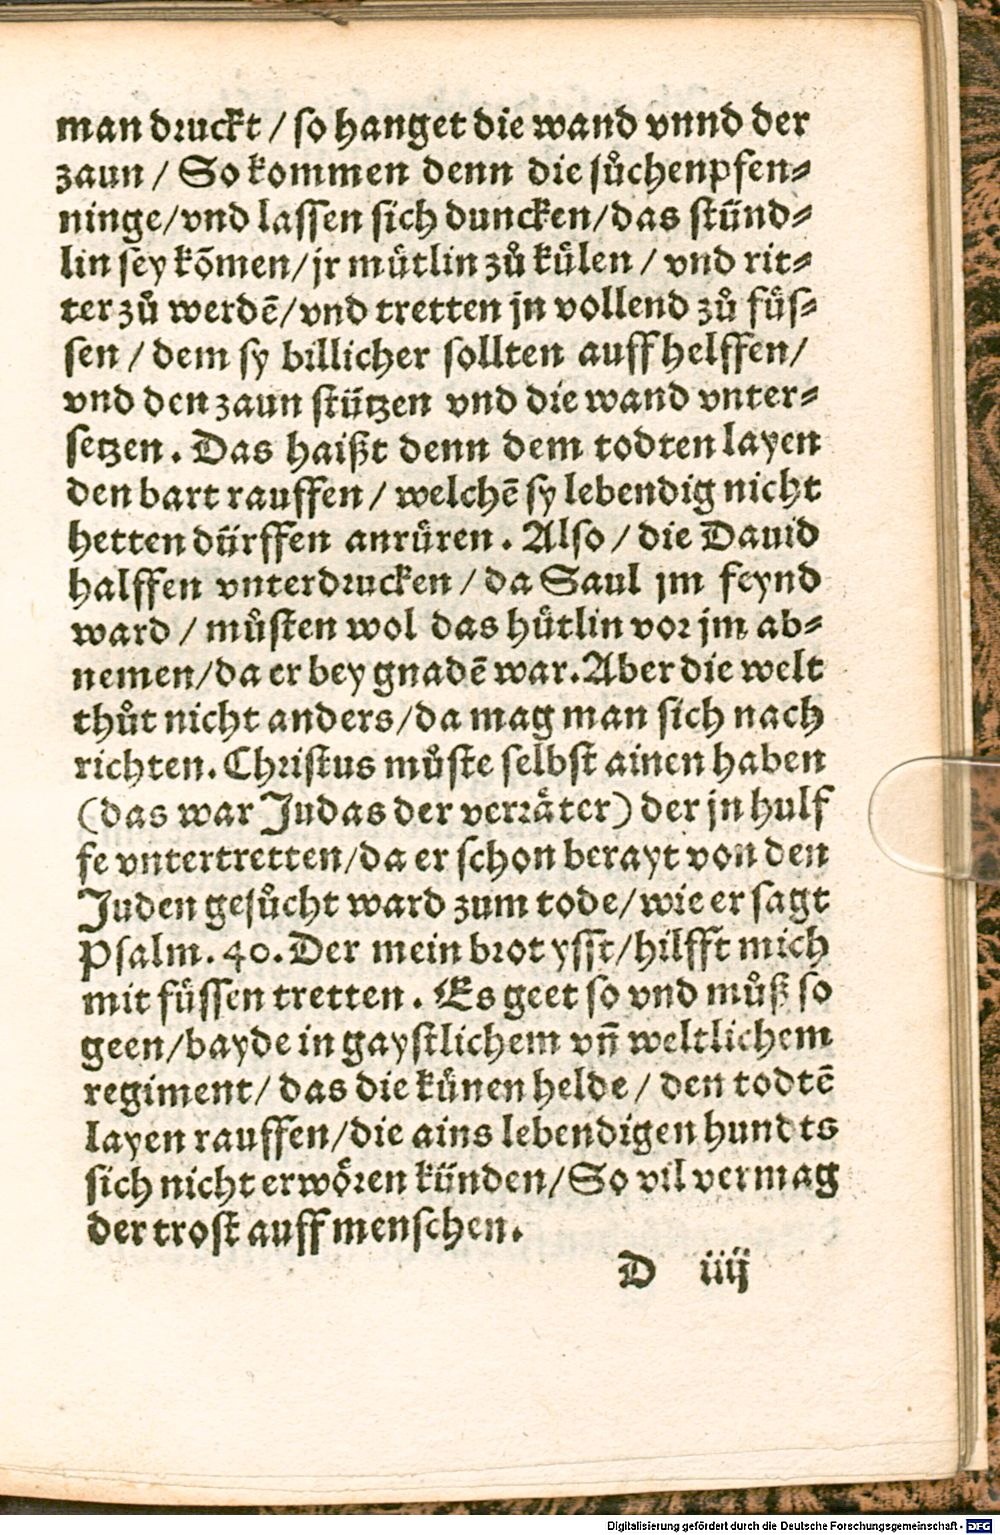 man druckt / so hanget die wand vnnd der
zaun / So kommen denn die sůchenpfen⸗
ninge/vnd lassen sich duncken/das stünd⸗
lin sey kõmen/jr mütlin zů külen / vnd rit⸗
ter zů werdẽ/vnd tretten jn vollend zů füs⸗
sen / dem sy billicher sollten auff helffen/
vnd den zaun stützen vnd die wand vnter⸗
setzen. Das haißt denn dem todten layen
den bart rauffen / welchẽ sy lebendig nicht
hetten dürffen anrüren. Also / die Dauid
halffen vnterdrucken / da Saul jm feynd
ward / můsten wol das hütlin vor jm ab⸗
nemen/da er bey gnadẽ war. Aber die welt
thůt nicht anders/da mag man sich nach
richten. Christus můste selbst ainen haben
(das war Judas der verräter) der jn hulf
fe vntertretten/da er schon berayt von den
Juden gesůcht ward zum tode/wie er sagt
Psalm. 40. Der mein brot ysst/hilfft mich
mit füssen tretten. Es geet so vnd můß so
geen/bayde in gaystlichem vñ weltlichem
regiment/ das die künen helde / den todtẽ
layen rauffen/die ains lebendigen hundts
sich nicht erwören künden/So vil vermag
der trost auff menschen.
D iiij
Digitalisierung gefördert durch die Deutsche Forschungsgemeinschaft - DFG